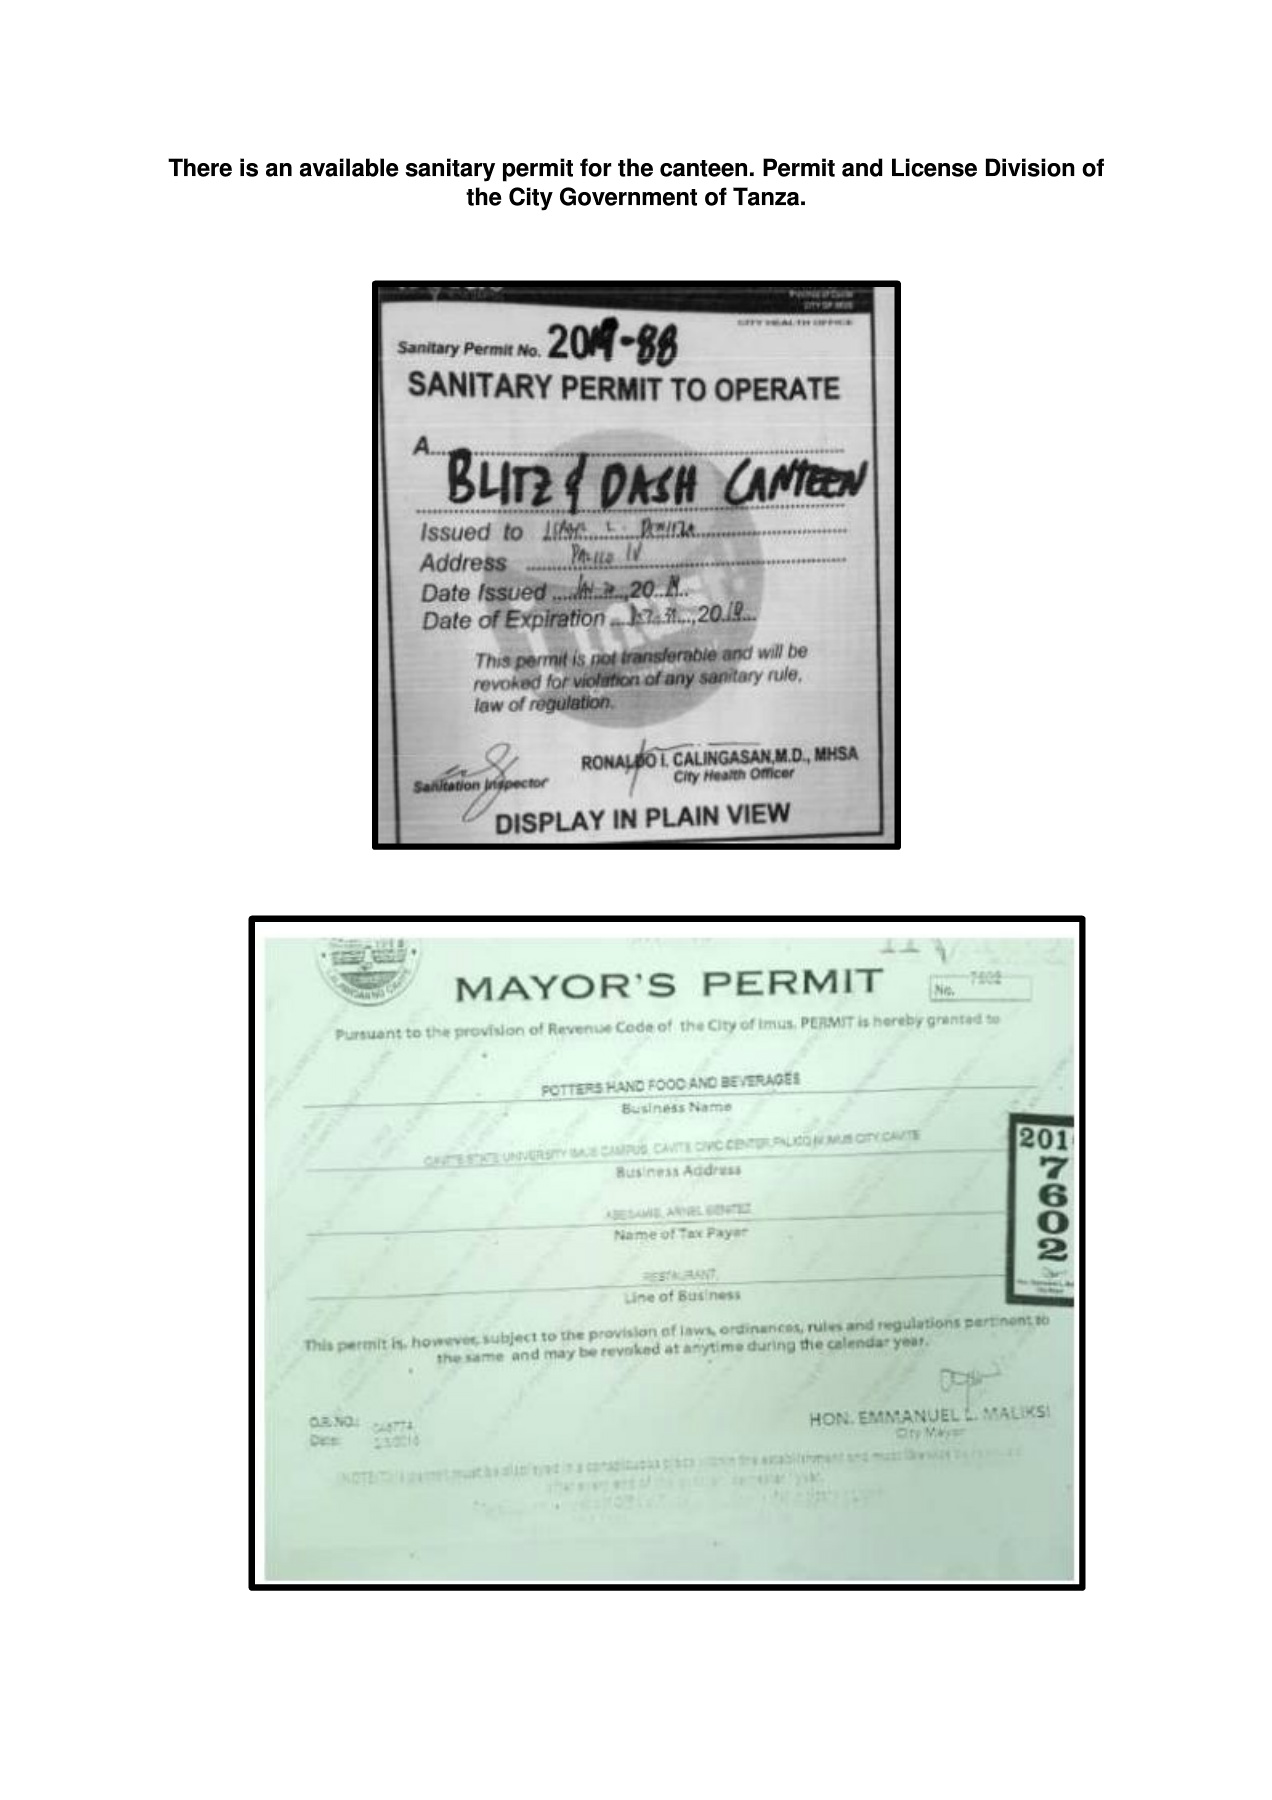 There is an available sanitary permit for the canteen. Permit and License Division of
the City Government of Tanza.
CITY OF IMUS
CITY HEALTH OFFICE
Sanitary Permit No. 2019-88
SANITARY PERMIT TO OPERATE
A
BLITZ & DASH CANTEEN
Issued to
Address PALICO IV
Date Issued , 20
Date of Expiration , 20
This permit is not transferable and will be
revoked for violation of any sanitary rule,
law of regulation.
RONALDO I. CALINGASAN,M.D., MHSA
City Health Officer
Sanitation Inspector
DISPLAY IN PLAIN VIEW
MAYOR'S PERMIT
No. 7602
Pursuant to the provision of Revenue Code of the City of Imus. PERMIT is hereby granted to
POTTERS HAND FOOD AND BEVERAGES
Business Name
CAVITE STATE UNIVERSITY IMUS CAMPUS, CAVITE CIVIC CENTER, PALICO IV IMUS CITY, CAVITE
Business Address
ABEDAMIS, ARNEL BENITEZ
Name of Tax Payer
RESTAURANT
Line of Business
201
7
6
0
2
This permit is, however, subject to the provision of laws, ordinances, rules and regulations pertinent to
the same and may be revoked at anytime during the calendar year.
O.R. NO.:
Date:
HON. EMMANUEL L. MALIKSI
City Mayor
permit must be displayed in a conspicuous place within the establishment and must likewise be
after every end of